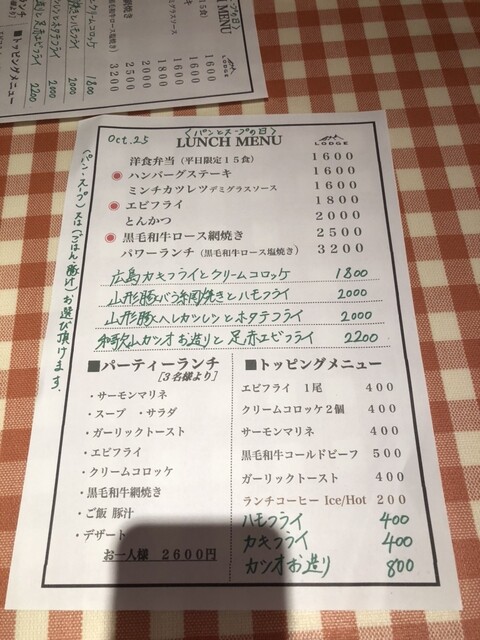 1600
1600
1600
1800
2000
2500
3200
1800
2000
2000
2200
LODGE
■トッピングメニュー
Oct.25
〈パンとスープの日〉
LUNCH MENU
LODGE
洋食弁当（平日限定１５食） 1600
◉ハンバーグステーキ 1600
ミンチカツレツデミグラスソース 1600
◉エビフライ 1800
とんかつ 2000
◉黒毛和牛ロース網焼き 2500
パワーランチ（黒毛和牛ロース塩焼き） 3200
広島カキフライとクリームコロッケ 1800
山形豚バラ網焼きとハモフライ 2000
山形豚ヘレカツレツとホタテフライ 2000
和歌山カツオお造りと足赤エビフライ 2200
(パン・スープ)又は(ごはん・豚汁)お選び頂けます。
■パーティーランチ
[３名様より]
・サーモンマリネ
・スープ ・サラダ
・ガーリックトースト
・エビフライ
・クリームコロッケ
・黒毛和牛網焼き
・ご飯 豚汁
・デザート
お一人様 ２６００円
■トッピングメニュー
エビフライ １尾 ４００
クリームコロッケ２個 ４００
サーモンマリネ ４００
黒毛和牛コールドビーフ ５００
ガーリックトースト ４００
ランチコーヒー Ice/Hot ２００
ハモフライ 400
カキフライ 400
カツオお造り 800